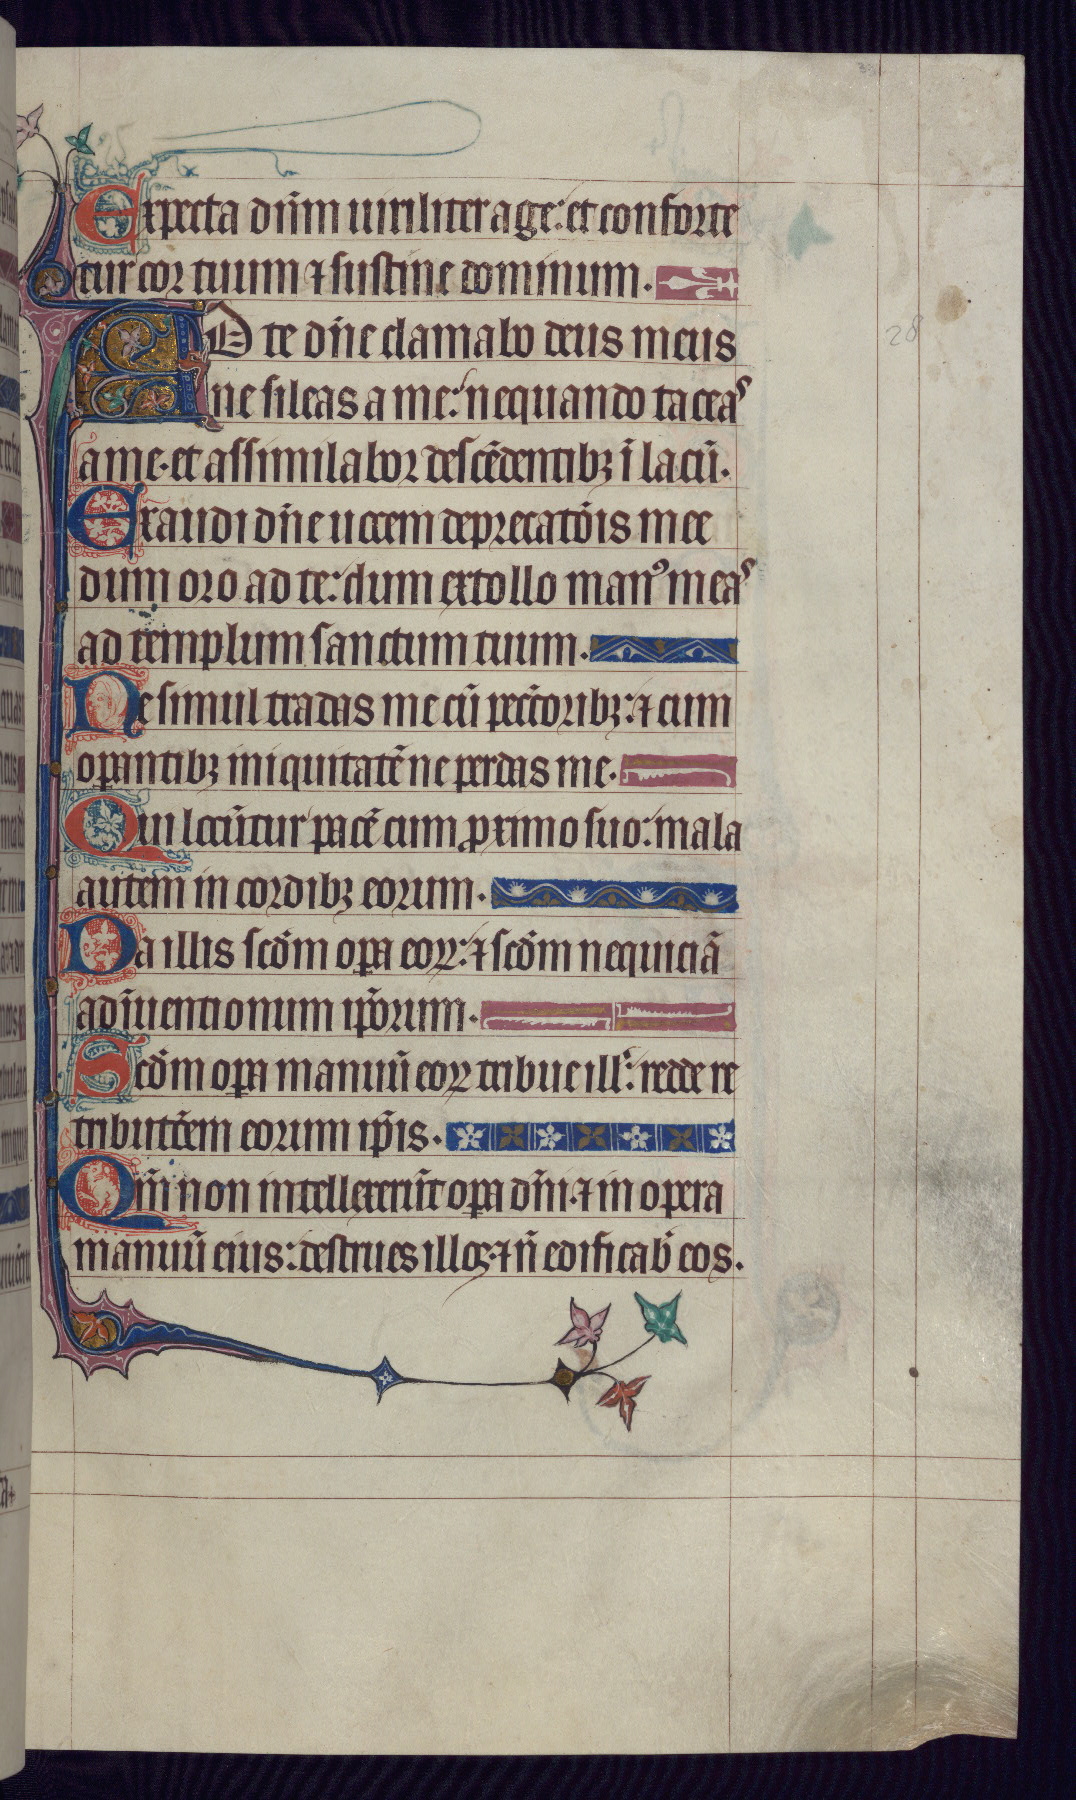 Expecta dn̄m uiriliter age: et conforte
tur cor tuum ⁊ sustine dominum.
AD te dn̄e clamabo deus meus
ne sileas a me: nequando taceaˢ
a me. et assimilabor descēdentibꝫ ī lacū.
Exaudi dn̄e uocem deprecatōis mee
dum oro ad te: dum extollo manꝰ meaˢ
ad templum sanctum tuum.
Ne simul tradas me cū pecc̄toribꝫ: ⁊ cum
oꝑantibꝫ iniquitatē ne perdas me.
Qui locūtur pacē cum ꝓximo suo: mala
autem in cordibꝫ eorum.
Da illis scdm̄ oꝑa eoꝝ: ⁊ scdm̄ nequiciā
adīuentionum ip̄orum.
Scdm̄ oꝑa manuū eoꝝ tribue ill̄: redde re
tributōem eorum ip̄is.
Qm̄ non intellexerūt oꝑa dn̄i. ⁊ in opera
manuū eius: destrues illos. ⁊ n̄ edificab̄ eos.
28